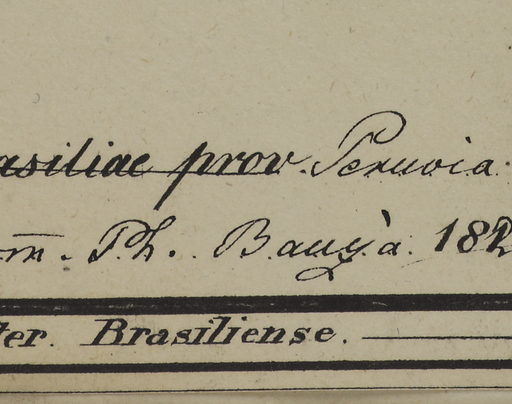 asiliae prov. Peruvia.
m. Ph. Bauzà. 182
ter. Brasiliense.